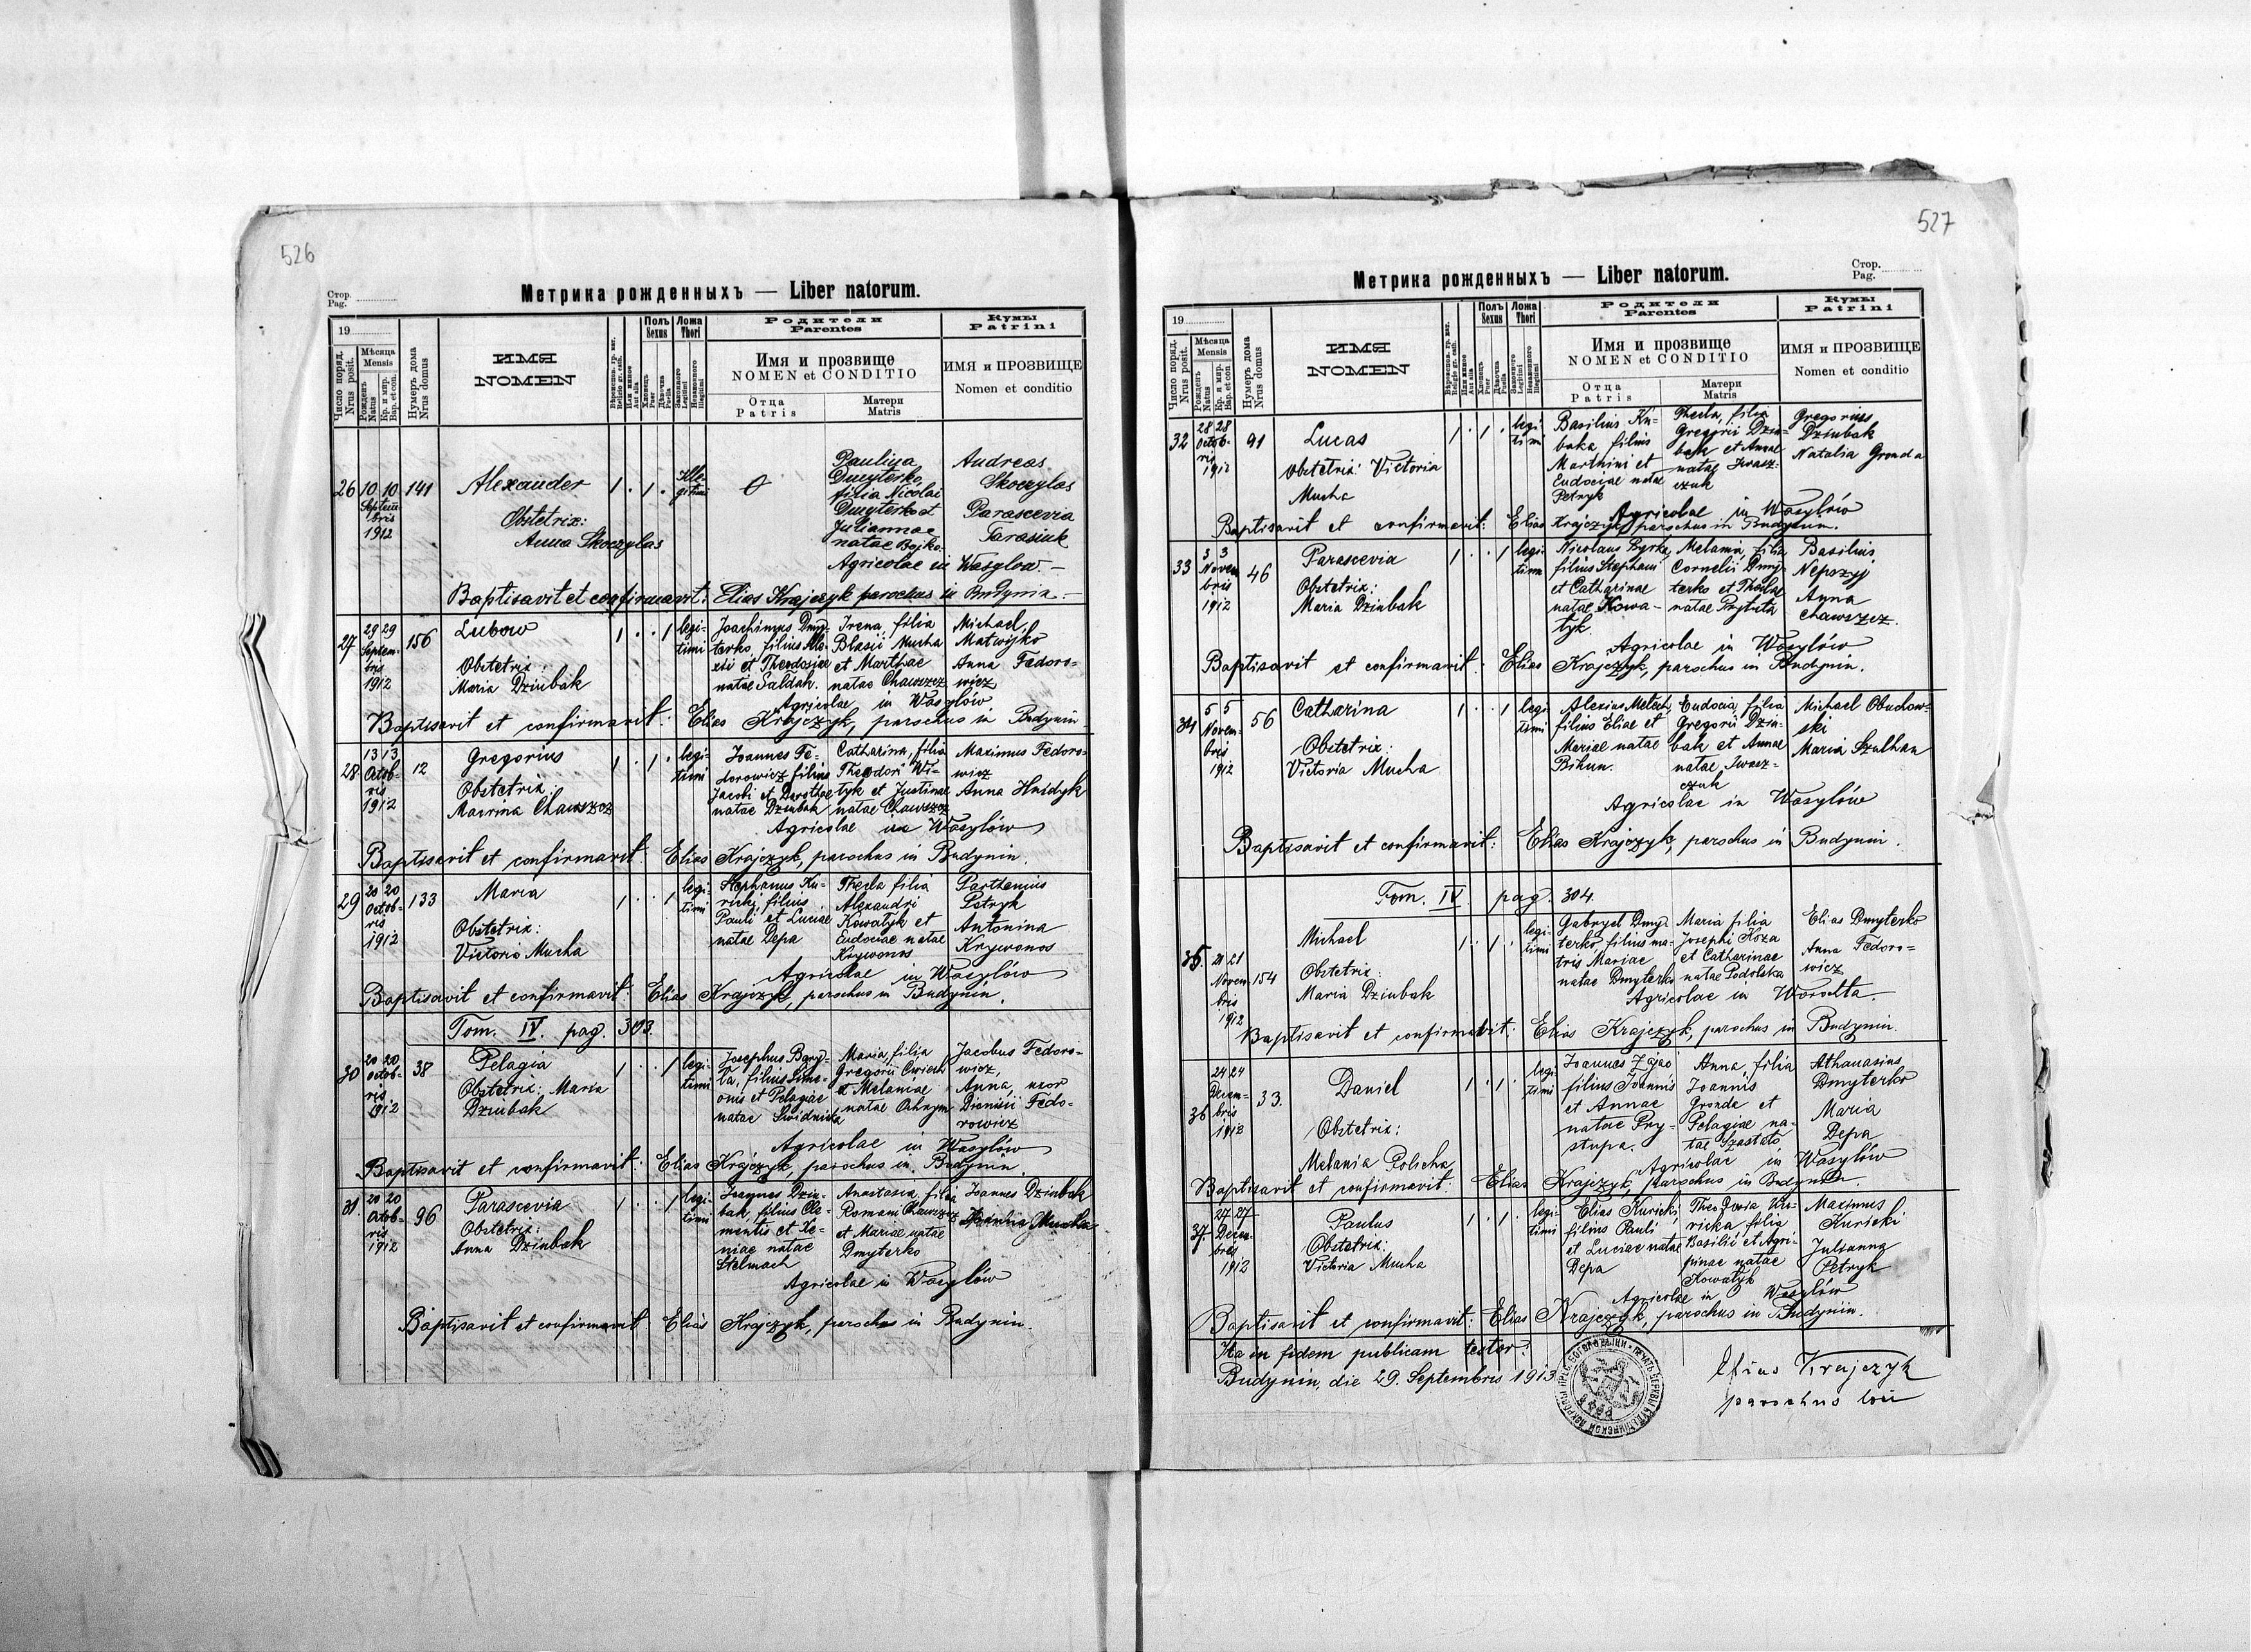 526
Стор.
Pag.
Метрика рожденныхъ — Liber natorum.
19
Число поряд.
Nrus posit.
Мѣсяца
Mensis
Рожденъ
Natus
Кр. и мир.
Bap. et con.
Нумеръ дома
Nrus domus
ИМЯ
NOMEN
Полъ
Sexus
Ложа
Thori
Родители
Parentes
Имя и прозвище
NOMEN et CONDITIO
Отца
Patris
Матери
Matris
Кумы
Patrini
ИМЯ и ПРОЗВИЩЕ
Nomen et conditio
26 10 10 Septembris 1912 141
Alexander
Obstetrix:
Anna Skoczylas
1 . 1 . Illegitimi
Paulina
Dmyterko,
filia Nicolai
Dmyterko et
Juliannae
natae Bojko.
Andreas
Skoczylas
Parascevia
Tarasiuk
Agricolae in Wasylow. —
Baptisavit et confirmavit: Elias Krajczyk parochus in Budynin —
27 29 29 Septembris 1912 156
Lubow
Obstetrix:
Maria Dziubak
1 . . 1 legitimi
Joachimus Dmy-
terko, filius Ale-
xii et Theodosiae
natae Saldak.
Irena, filia
Blasii Mucha
et Marthae
natae Chawszcz
Michael,
Matwijko
Anna Fedoro-
wicz
Agricolae in Wasylów
Baptisavit et confirmavit: Elias Krajczyk, parochus in Budynin
28. 13 13 Octobris 1912 12
Gregorius
Obstetrix:
Macrina Chawszcz
1 . 1 . legitimi
Joannes Fe-
dorowicz filius
Jacobi et Dorotheae
natae Dziubak
Catharina, filia
Theodori Wi-
tyk et Justinae
natae Chawszcz
Maximus Fedoro-
wicz
Anna Hnidyk
Agricolae in Wasylów
Baptisavit et confirmavit: Elias Krajczyk, parochus in Budynin.
29 20 20 Octobris 1912 133
Maria
Obstetrix:
Victoria Mucha
1 . . 1 legitimi
Stephanus Ku-
ricki, filius
Pauli et Luciae
natae Depa
Thecla filia
Alexandri
Kowalyk et
Eudociae natae
Krywonos
Parthenius
Petryk
Antonina
Krywonos
Agricolae in Wasylów
Baptisavit et confirmavit: Elias Krajczyk, parochus in Budynin.
Tom. IV. pag. 303.
30 20 20 Octobris 1912 38
Pelagia
Obstetrix: Maria
Dziubak
1 . . 1 legitimi
Josephus Bary-
la, filius Sime-
onis et Pelagiae
natae Swidnicka
Maria, filia
Gregorii
et Melaniae
natae Ochrym
Jacobus Fedoro-
wicz,
Anna, uxor
Dionisii Fedo-
rowicz
Agricolae in Wasylów
Baptisavit et confirmavit: Elias Krajczyk, parochus in Budynin.
31. 20 20 Octobris 1912 96
Parascevia
Obstetrix:
Anna Dziubak
1 . . 1 legitimi
Joannes Dziu-
bak, filius Cle-
mentis et Xe-
niae natae
Stelmach
Anastasia filia
Romani Chawszcz
et Mariae natae
Dmyterko
Joannes Dziubak
Mucha
Agricolae in Wasylów
Baptisavit et confirmavit: Elias Krajczyk, parochus in Budynin.
527
Стор.
Pag.
Метрика рожденныхъ — Liber natorum.
19
Число поряд.
Nrus posit.
Мѣсяца
Mensis
Рожденъ
Natus
Кр. и мир.
Bap. et con.
Нумеръ дома
Nrus domus
ИМЯ
NOMEN
Полъ
Sexus
Ложа
Thori
Родители
Parentes
Имя и прозвище
NOMEN et CONDITIO
Отца
Patris
Матери
Matris
Кумы
Patrini
ИМЯ и ПРОЗВИЩЕ
Nomen et conditio
32 28 28 Octobris 1912 91
Lucas
Obstetrix: Victoria
Mucha
1 . 1 . legitimi
Basilius Ku-
baka filius
Marthini et
Eudociae natae
Petryk
Thecla, filia
Gregorii Dziu-
bak et Annae
natae Iwasz-
czuk
Gregorius
Dziubak
Natalia Gronda
Agricolae in Wasylów
Baptisavit et confirmavit: Elias Krajczyk, parochus in Budynin.
33 3 3 Novembris 1912 46
Parascevia
Obstetrix:
Maria Dziubak
1 . . 1 legitimi
Nicolaus Zyrka,
filius Stephani
et Catharinae
natae Kowa-
lyk.
Melania, filia
Cornelii Dmy-
terko et Theclae
natae Prytuta
Basilius
Nepszyj
Anna
Chawszcz.
Agricolae in Wasylów
Baptisavit et confirmavit: Elias Krajczyk, parochus in Budynin.
34 5 5 Novembris 1912 56
Catharina
Obstetrix:
Victoria Mucha
1 . . 1 legitimi
Alexius Melech,
filius Eliae et
Mariae natae
Bihun.
Eudocia, filia
Gregorii Dziu-
bak et Annae
natae Iwasz-
czuk
Michael Obuchow-
ski
Maria Szulhan
Agricolae in Wasylów
Baptisavit et confirmavit: Elias Krajczyk, parochus in Budynin.
Tom. IV pag. 304.
35. 21 21 Novembris 1912 154
Michael
Obstetrix:
Maria Dziubak
1 . 1 . legitimi
Gabryel Dmy-
terko filius ma-
tris Mariae
natae Dmyterko
Maria filia
Josephi Koza
et Catharinae
natae Podolska
Elias Dmyterko
Anna Fedoro-
wicz
Agricolae in Worochta.
Baptisavit et confirmavit: Elias Krajczyk, parochus in Budynin.
36 24 24 Decembris 1912 33.
Daniel
Obstetrix:
Melania Policha
1 . 1 . legitimi
Joannes Zajac
filius Joannis
et Annae
natae Pry-
stupa.
Anna, filia
Joannis
Gronda et
Pelagiae na-
tae Szostato
Athanasius
Dmyterko
Maria
Depa
Agricolae in Wasylów
Baptisavit et confirmavit: Elias Krajczyk, parochus in Budynin.
37. 27 27 Decembris 1912
Paulus
Obstetrix:
Victoria Mucha
1 . 1 . legitimi
Elias Kuricki,
filius Pauli
et Luciae natae
Depa
Theodosia Ku-
ricka filia
Basilii et Agri-
pinae natae
Kowalyk
Maximus
Kuricki
Julianna
Petryk
Agricolae in Wasylów
Baptisavit et confirmavit: Elias Krajczyk, parochus in Budynin.
Ita in fidem publicam testor:
Budynin, die 29. Septembris 1913
Elias Krajczyk
parochus loci